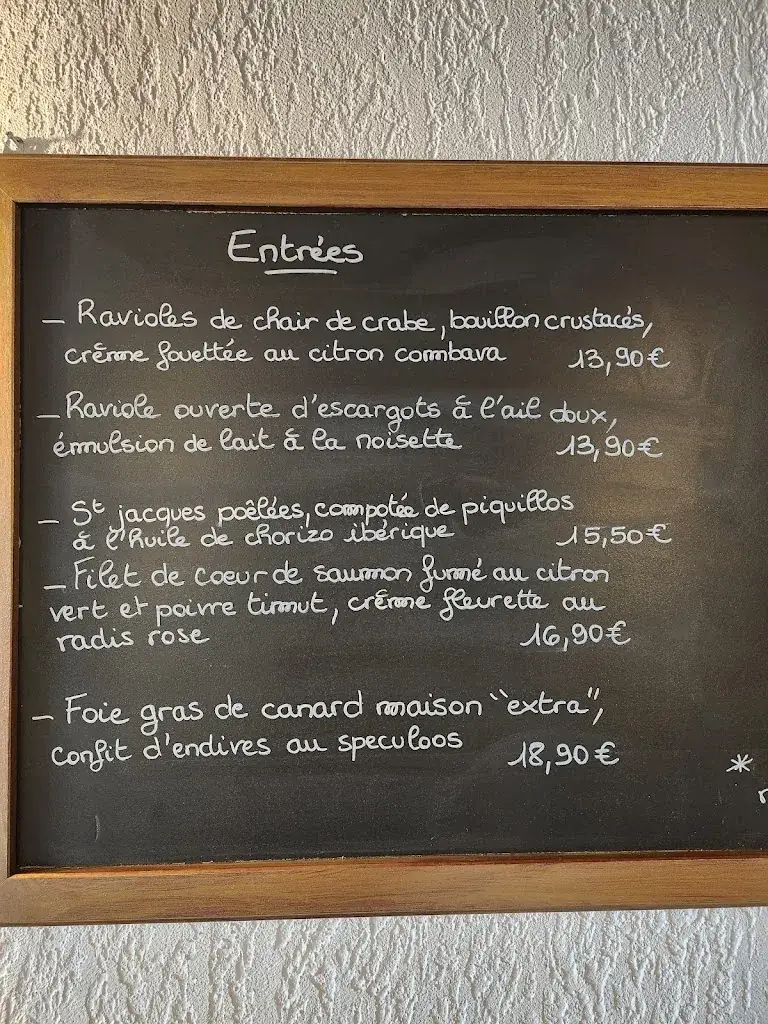 Entrées
- Ravioles de chair de crabe, bouillon crustacés,
crème fouettée au citron combava 13,90€
- Raviole ouverte d'escargots à l'ail doux,
émulsion de lait à la noisette 13,90€
- St jacques poêlées, compotée de piquillos
à l'huile de chorizo ibérique 15,50€
- Filet de coeur de saumon fumé au citron
vert et poivre timut, crème fleurette au
radis rose 16,90€
- Foie gras de canard maison "extra",
confit d'endives au speculoos 18,90€
*